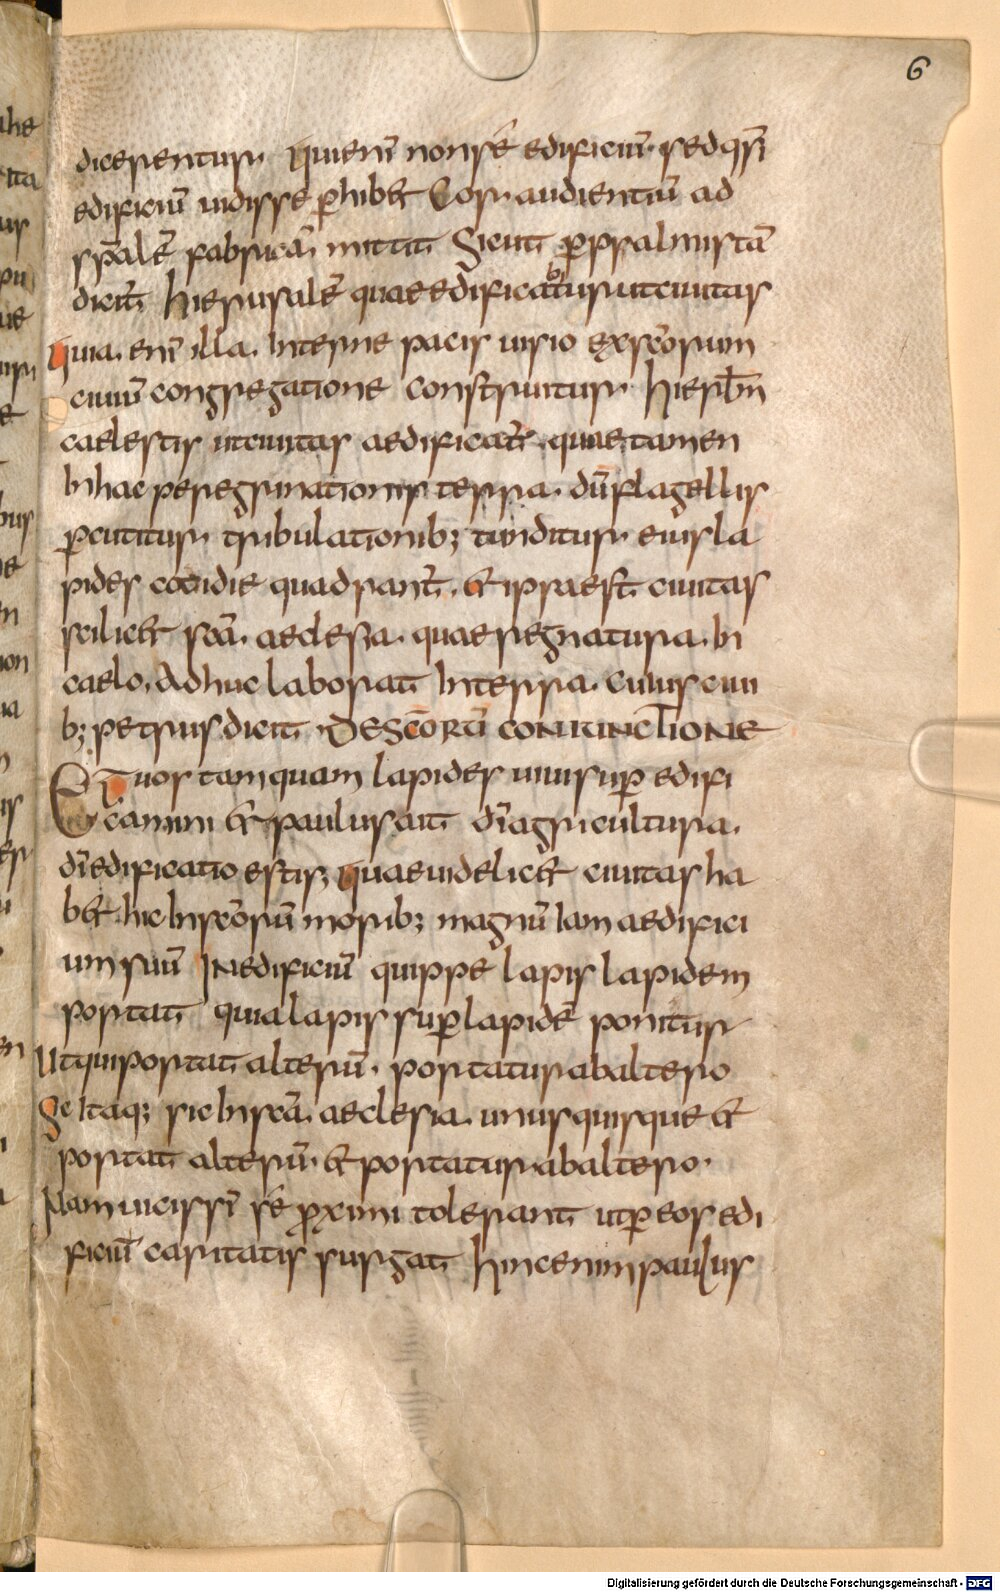 6
dicerentur. Qui enim̄ non sē edificiū. sed q̄si
edificiū uidisse ꝑhibet Cor audientiū ad
sp̄alē fabricā mittit Sicut ꝑ psalmistā
dicit̄ hierusalē quae edificatur ut ciuitas
Quia. enī illa. Interne pacis uisio ex sc̄orum
ciuiū congregatione construitur. hierl̄m
caelestis ut ciuitas aedificat̄. quae tamen
In hac peregrinationis terra. dū flagellis
ꝑcutitur tribulationib; tunditur eius la
pides cotidie quadrant̄. et ipsa est ciuitas
scilicet sc̄a. aeclesia. quae regnatura. In
caelo. Adhuc laborat In terra. cuius ciui
b; petrus dicit. DE SC̄ORŪ CONIUNCTIONE
Et uos tamquam lapides uiui suꝑ edifi
camini et paulus ait dī agricultura.
dī edificatio estis; Quae uidelicet ciuitas ha
bet hic In sc̄orū morib; magnū Iam aedifici
um suū IN edificiū quippe lapis lapidem
portat quia lapis suꝑ lapidē ponitur
Ut qui portat alterū. portatur ab altero
Sic Itaq; sic In sc̄a. aeclesia. unusquisque et
portat alterū. et portatur ab altero.
Nam uicissī sē ꝓximi tolerant ut ꝑ eos edi
ficiū caritatis surgat hinc enim paulus
Digitalisierung gefördert durch die Deutsche Forschungsgemeinschaft - DFG